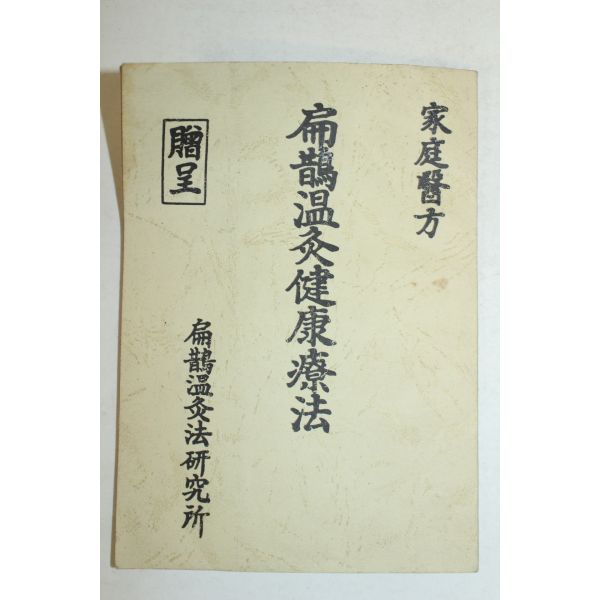 家庭醫方
扁鵲溫灸健康療法
贈呈
扁鵲溫灸法研究所